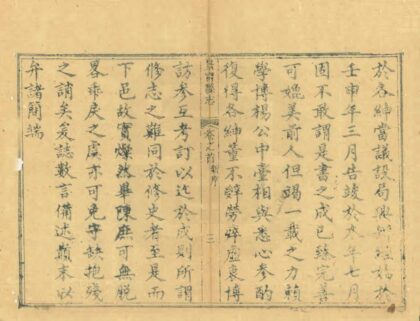 於各紳當議設局興修稿始於
壬申年三月告竣於年七月
固不敢謂是書之成已臻完善
可媲美前人但竭一載之力賴
學博楊公中臺相與悉心參酌
復得各紳董不辭勞瘁虛衷博
縣志
卷之首 序
三
訪參互考訂以迄於成則所謂
修志之難同於修史者至是而
下邑故實燦然畢陳庶可無脫
畧乖戾之虞亦可免守缺抱殘
之誚矣爰誌數言備述顛末以
弁諸簡端